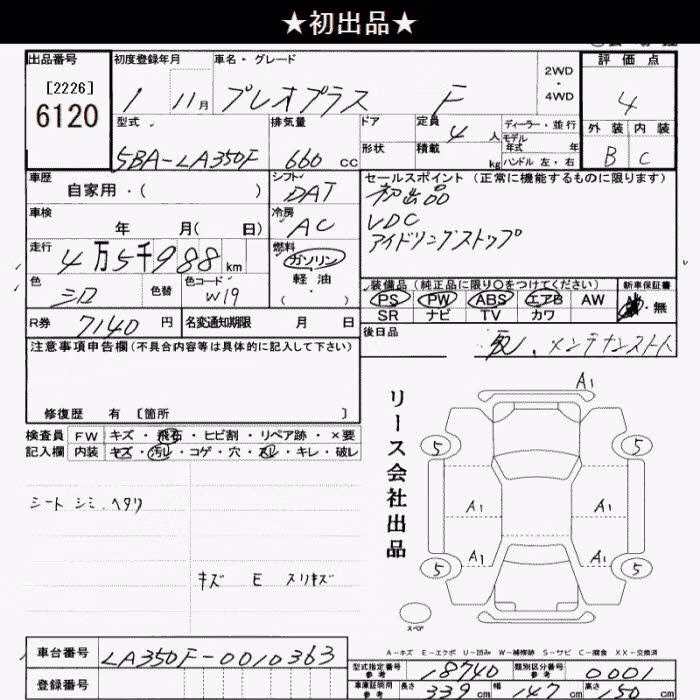 ★初出品★
出品番号 初度登録年月 車名・グレード 2WD・4WD 評価点
[2226]
6120
1 11月 プレオプラス F 4
型式 排気量 ドア 定員 4人 ディーラー・並行 外装 内装
5BA-LA350F 660 CC 形状 積載 kg モデル年式 年 ハンドル 左・右 B C
車歴 自家用・( ) シフト DAT セールスポイント (正常に機能するものに限ります)
初出品
車検 年 月( 日) 冷房 AC VDC
アイドリングストップ
走行 4万5千988km 燃料 ガソリン
軽油
( ・ )
色 シロ 色替 色コード W19
装備品 (純正品に限り〇をつけてください) 新車保証書
PS PW ABS エアB AW 有・無
SR ナビ TV カワ
R券 7140円 名変通知期限 月 日
後日品 メンテナンスノート
注意事項申告欄(不具合内容等は具体的に記入して下さい)
修復歴 有 [箇所 ]
リース会社出品
A1
5 5
A1 A1
A1 A1
5 5
スペア
検査員 FW キズ・飛石・ヒビ割・リペア跡・×要
記入欄 内装 キズ・汚レ・コゲ・穴・スレ・キレ・破レ
シート シミ.ヘタリ
キズ E スリキズ
A-キズ E-エクボ U-凹み W-補修跡 S-サビ C-腐食 XX-交換済
車台番号 LA350F-0010363
登録番号
型式指定番号 参考 18740 類別区分番号 参考 0001
車庫証明用 参考 長さ 339cm 幅 147cm 高さ 150cm